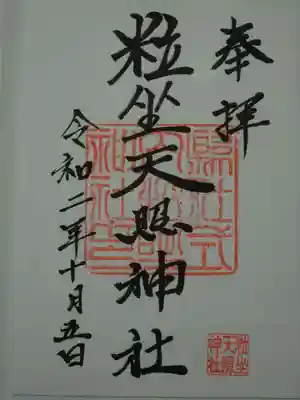 奉拝
粒坐天照神社
令和二年十月五日
粒坐
天照
神社